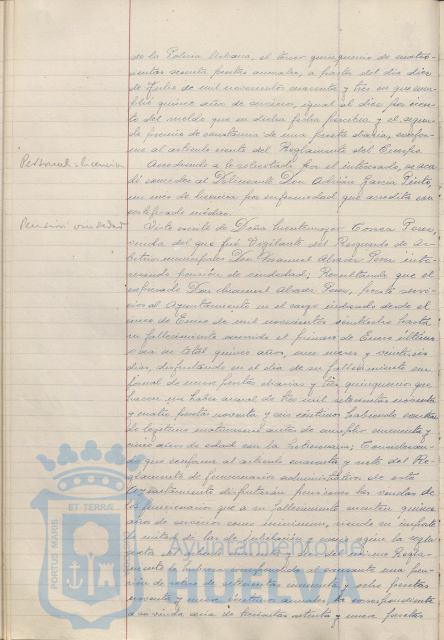 de la Policía Urbana, el tercer quinquenio de cuatro-
cientas sesenta pesetas anuales, a partir del día doce
de Julio de mil novecientos cuarenta y tres en que cum-
plió quince años de servicio, igual al diez por cien-
to del sueldo que en dicha fecha percibía y el segun-
do premio de constancia de una peseta diaria, confor-
me al artículo veinte del Reglamento del Cuerpo.
Personal = licencia
Accediendo a lo solicitado por el interesado, se acor-
dó conceder al Delineante Don Adrián García Pinto,
un mes de licencia por enfermedad que acredita con
certificado médico.
Pensión viudedad
Visto escrito de Doña Correa Pérez,
viuda del que fué Vigilante del Resguardo de Ar-
bitrios municipales Don Manuel Pérez inte-
resando pensión de viudedad; Resultando que el
expresado Don Manuel Pérez, prestó servi-
cios al Ayuntamiento en el cargo indicado desde el
mes de Enero de mil novecientos veintiocho hasta
su fallecimiento ocurrido el primero de Enero último
o sea un total quince años, once meses y veintiseis
días, disfrutando en el día de su fallecimiento un
jornal de nueve pesetas diarias y tres quinquenios que
hacen un haber anual de tres mil setecientas noventa
y cuatro pesetas noventa y un céntimos habiendo contraido
legítimo matrimonio antes de cumplir cincuenta y
cinco años de edad con la solicitante; Consideran-
do que conforme al artículo cuarenta y siete del Re-
glamento de funcionarios administrativos de este
Ayuntamiento disfrutarán pensiones las viudas de
los funcionarios que a su fallecimiento cuenten quince
años de servicios como mínimum, siendo su importe
la mitad de las de jubilación, como según la regla
sexta del mismo Regla-
mento le hubiera correspondido al causante una pen-
sión de retiro de setecientas cincuenta y ocho pesetas
noventa y nueve céntimos anuales, la correspondiente
a su viuda sería de trescientas setenta y nueve pesetas
PORTUS MARIS ET TERRÆ
Ayuntamiento de
HUELVA